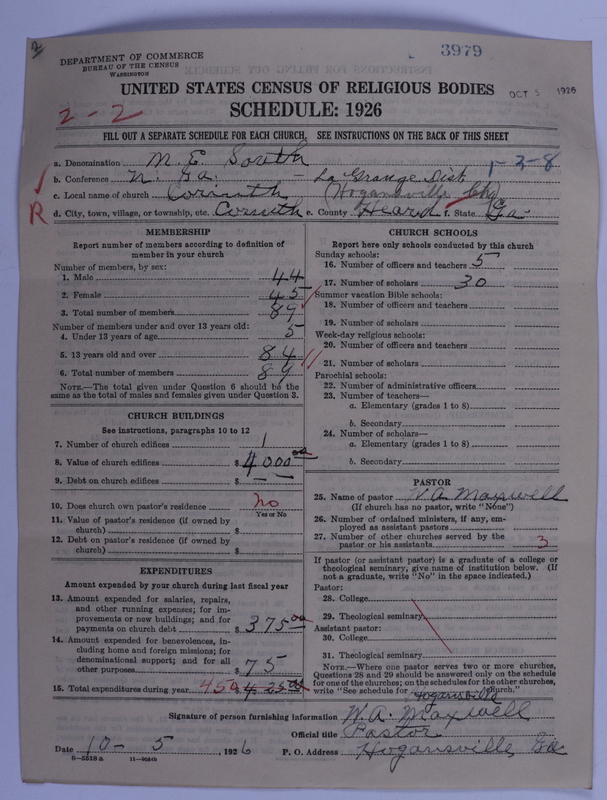 2
3979
DEPARTMENT OF COMMERCE
BUREAU OF THE CENSUS
WASHINGTON
UNITED STATES CENSUS OF RELIGIOUS BODIES
OCT 5 1926
2-2
SCHEDULE: 1926
FILL OUT A SEPARATE SCHEDULE FOR EACH CHURCH. SEE INSTRUCTIONS ON THE BACK OF THIS SHEET
a. Denomination M. E. South
1-2-8
b. Conference N. Ga. - La Grange Dist
c. Local name of church Corinth (Hogansville Chg)
R
d. City, town, village, or township, etc. Corinth e. County Heard f. State Ga.
MEMBERSHIP
Report number of members according to definition of
member in your church
Number of members, by sex:
1. Male 44
2. Female 45
3. Total number of members 89
Number of members under and over 13 years old:
4. Under 13 years of age 5
5. 13 years old and over 84
6. Total number of members 89
NOTE.—The total given under Question 6 should be the
same as the total of males and females given under Question 3.
CHURCH BUILDINGS
See instructions, paragraphs 10 to 12
7. Number of church edifices 1
8. Value of church edifices $ 4000 00
9. Debt on church edifices $ — —
10. Does church own pastor's residence no
Yes or No
11. Value of pastor's residence (if owned by
church) $
12. Debt on pastor's residence (if owned by
church) $
EXPENDITURES
Amount expended by your church during last fiscal year
13. Amount expended for salaries, repairs,
and other running expenses; for im-
provements or new buildings; and for
payments on church debt $ 375 00
14. Amount expended for benevolences, in-
cluding home and foreign missions; for
denominational support; and for all
other purposes $ 75
15. Total expenditures during year 450 425 00
CHURCH SCHOOLS
Report here only schools conducted by this church
Sunday schools:
16. Number of officers and teachers 5
17. Number of scholars 30
Summer vacation Bible schools:
18. Number of officers and teachers
19. Number of scholars
Week-day religious schools:
20. Number of officers and teachers
21. Number of scholars
Parochial schools:
22. Number of administrative officers
23. Number of teachers—
a. Elementary (grades 1 to 8)
b. Secondary
24. Number of scholars—
a. Elementary (grades 1 to 8)
b. Secondary
PASTOR
25. Name of pastor W. A. Maxwell
(If church has no pastor, write "None")
26. Number of ordained ministers, if any, em-
ployed as assistant pastors
27. Number of other churches served by the
pastor or his assistants 3
If pastor (or assistant pastor) is a graduate of a college or
theological seminary, give name of institution below. (If
not a graduate, write "No" in the space indicated.)
Pastor:
28. College
29. Theological seminary
Assistant pastor:
30. College
31. Theological seminary
NOTE.—Where one pastor serves two or more churches,
Questions 28 and 29 should be answered only on the schedule
for one of the churches; on the schedules for the other churches,
write "See schedule for Hogansville church."
Signature of person furnishing information W. A. Maxwell
Official title Pastor
Date 10 - 5, 1926 P. O. Address Hogansville, Ga.